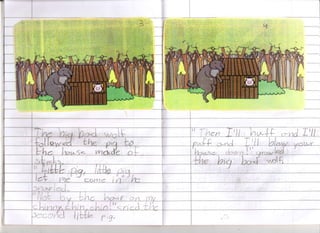 3
The big bad wolf
followed the pig to
the house made of
sticks.
"little pig, little pig
let me come in" he
snarled.
"Not by the hair on my
chinny chin chin" cried the
second little pig.
4
"Then I'll huff and I'll
puff and I'll blow your
house down" growled
the big bad wolf.